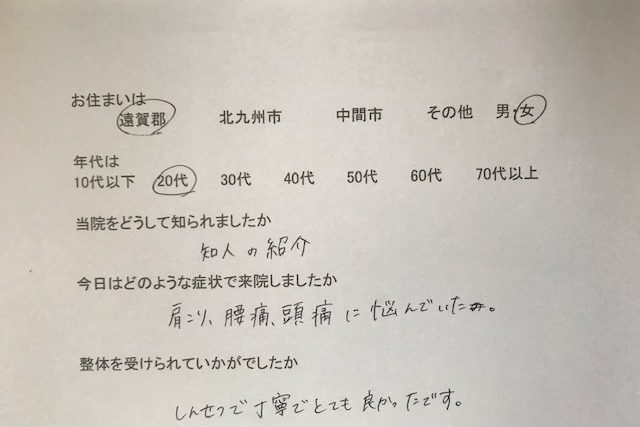 お住まいは
遠賀郡 北九州市 中間市 その他 男・女
年代は
10代以下 20代 30代 40代 50代 60代 70代以上
当院をどうして知られましたか
知人の紹介
今日はどのような症状で来院しましたか
肩こり、腰痛、頭痛に悩んでいた。
整体を受けられていかがでしたか
しんせつで丁寧でとても良かったです。